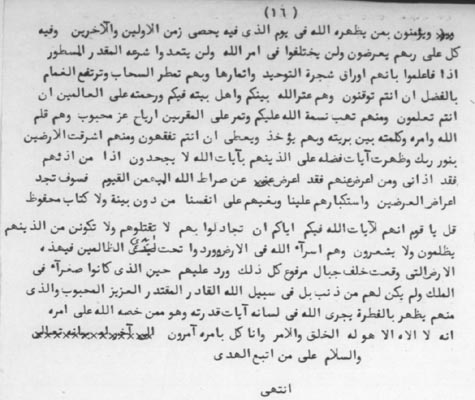 (١٦)
ويؤمنون بمن يظهره الله في يوم الذى فيه يحصى زمن الاولين والآخرين وفيه
كل على ربهم يعرضون ولن يختلفوا فى امر الله ولن يتعدوا شرعه المقدر المسطور
اذا فاعلموا بانهم اوراق شجرة التوحيد واثمارها وبهم تمطر السحاب وترتفع الغمام
بالفضل ان انتم توقنون وهم عترالله بينكم واهل بيته فيكم ورحمته على العالمين ان
انتم تعلمون ومنهم تهب نسمة الله عليكم وتمر على المقربين ارياح عز محبوب وهم قلم
الله وامره وكلمته بين بريته وبهم يؤخذ ويعطى ان انتم تفقهون ومنهم اشرقت الارضين
بنور ربك وظهرت آيات فضله على الذينهم بآيات الله لا يجحدون اذا من اذيهم
فقد اذانى ومن اعرض عنهم فقد اعرض عن صراط الله المهيمن القيوم فسوف تجد
اعراض المعرضين واستكبارهم علينا وبغيهم على انفسنا من دون بينة ولا كتاب محفوظ
قل يا قوم انهم لآيات الله فيكم اياكم ان تجادلوا بهم لا تقتلوهم ولا تكونن من الذينهم
يظلمون ولا يشعرون وهم اسرآء الله فى الارض وردوا تحت ايدى الظالمين فى هذه
الارض التى وقعت خلف جبال مرفوع كل ذلك ورد عليهم حين الذى كانوا صغرآء فى
الملك ولم يكن لهم من ذنب بل فى سبيل الله القادر المقتدر العزيز المحبوب والذى
منهم يظهر بالفطرة يجرى الله فى لسانه آيات قدرته وهو ممن خصه الله على امره
انه لا اله الا هو له الخلق والامر وانا كل بامره آمرون
والسلام على من اتبع الهدى
انتهى